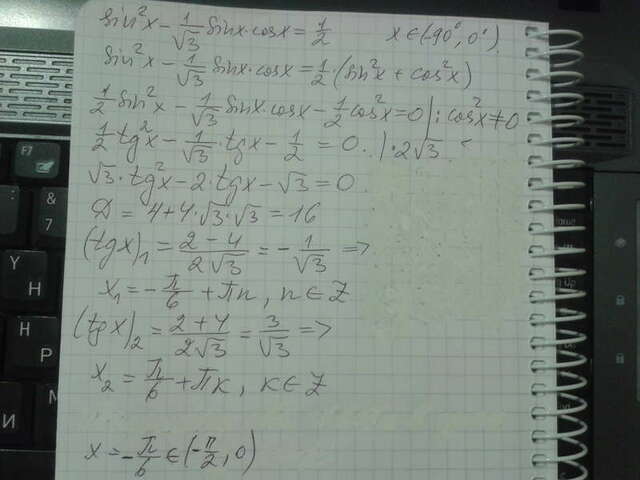 sin²x - 1/√3 sinx·cosx = 1/2 x∈(-90°, 0°)
sin²x - 1/√3 sinx·cosx = 1/2·(sin²x + cos²x)
1/2 sin²x - 1/√3 sinx·cosx - 1/2 cos²x = 0 |: cos²x ≠ 0
1/2 tg²x - 1/√3·tgx - 1/2 = 0. |·2√3
√3·tg²x - 2·tgx - √3 = 0
Д = 4+4·√3·√3 = 16
(tgx)₁ = (2-4)/(2√3) = -1/√3 =>
x₁ = -π/6 + πn, n∈Z
(tgx)₂ = (2+4)/(2√3) = 3/√3 =>
x₂ = π/6 + πk, k∈Z
x = -π/6 ∈ (-π/2, 0)
F7
&
7
Y
Н
H
Р
И